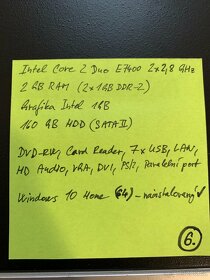 Intel Core 2 Duo E7400 2x2,8 GHz
2 GB RAM (2x1GB DDR-2)
Grafika Intel 1GB
160 GB HDD (SATA II)
DVD-RW, Card Reader, 7x USB, LAN,
HD Audio, VGA, DVI, PS/2, Paralelní port
Windows 10 Home (64) - nainstalovaný ✓
6.